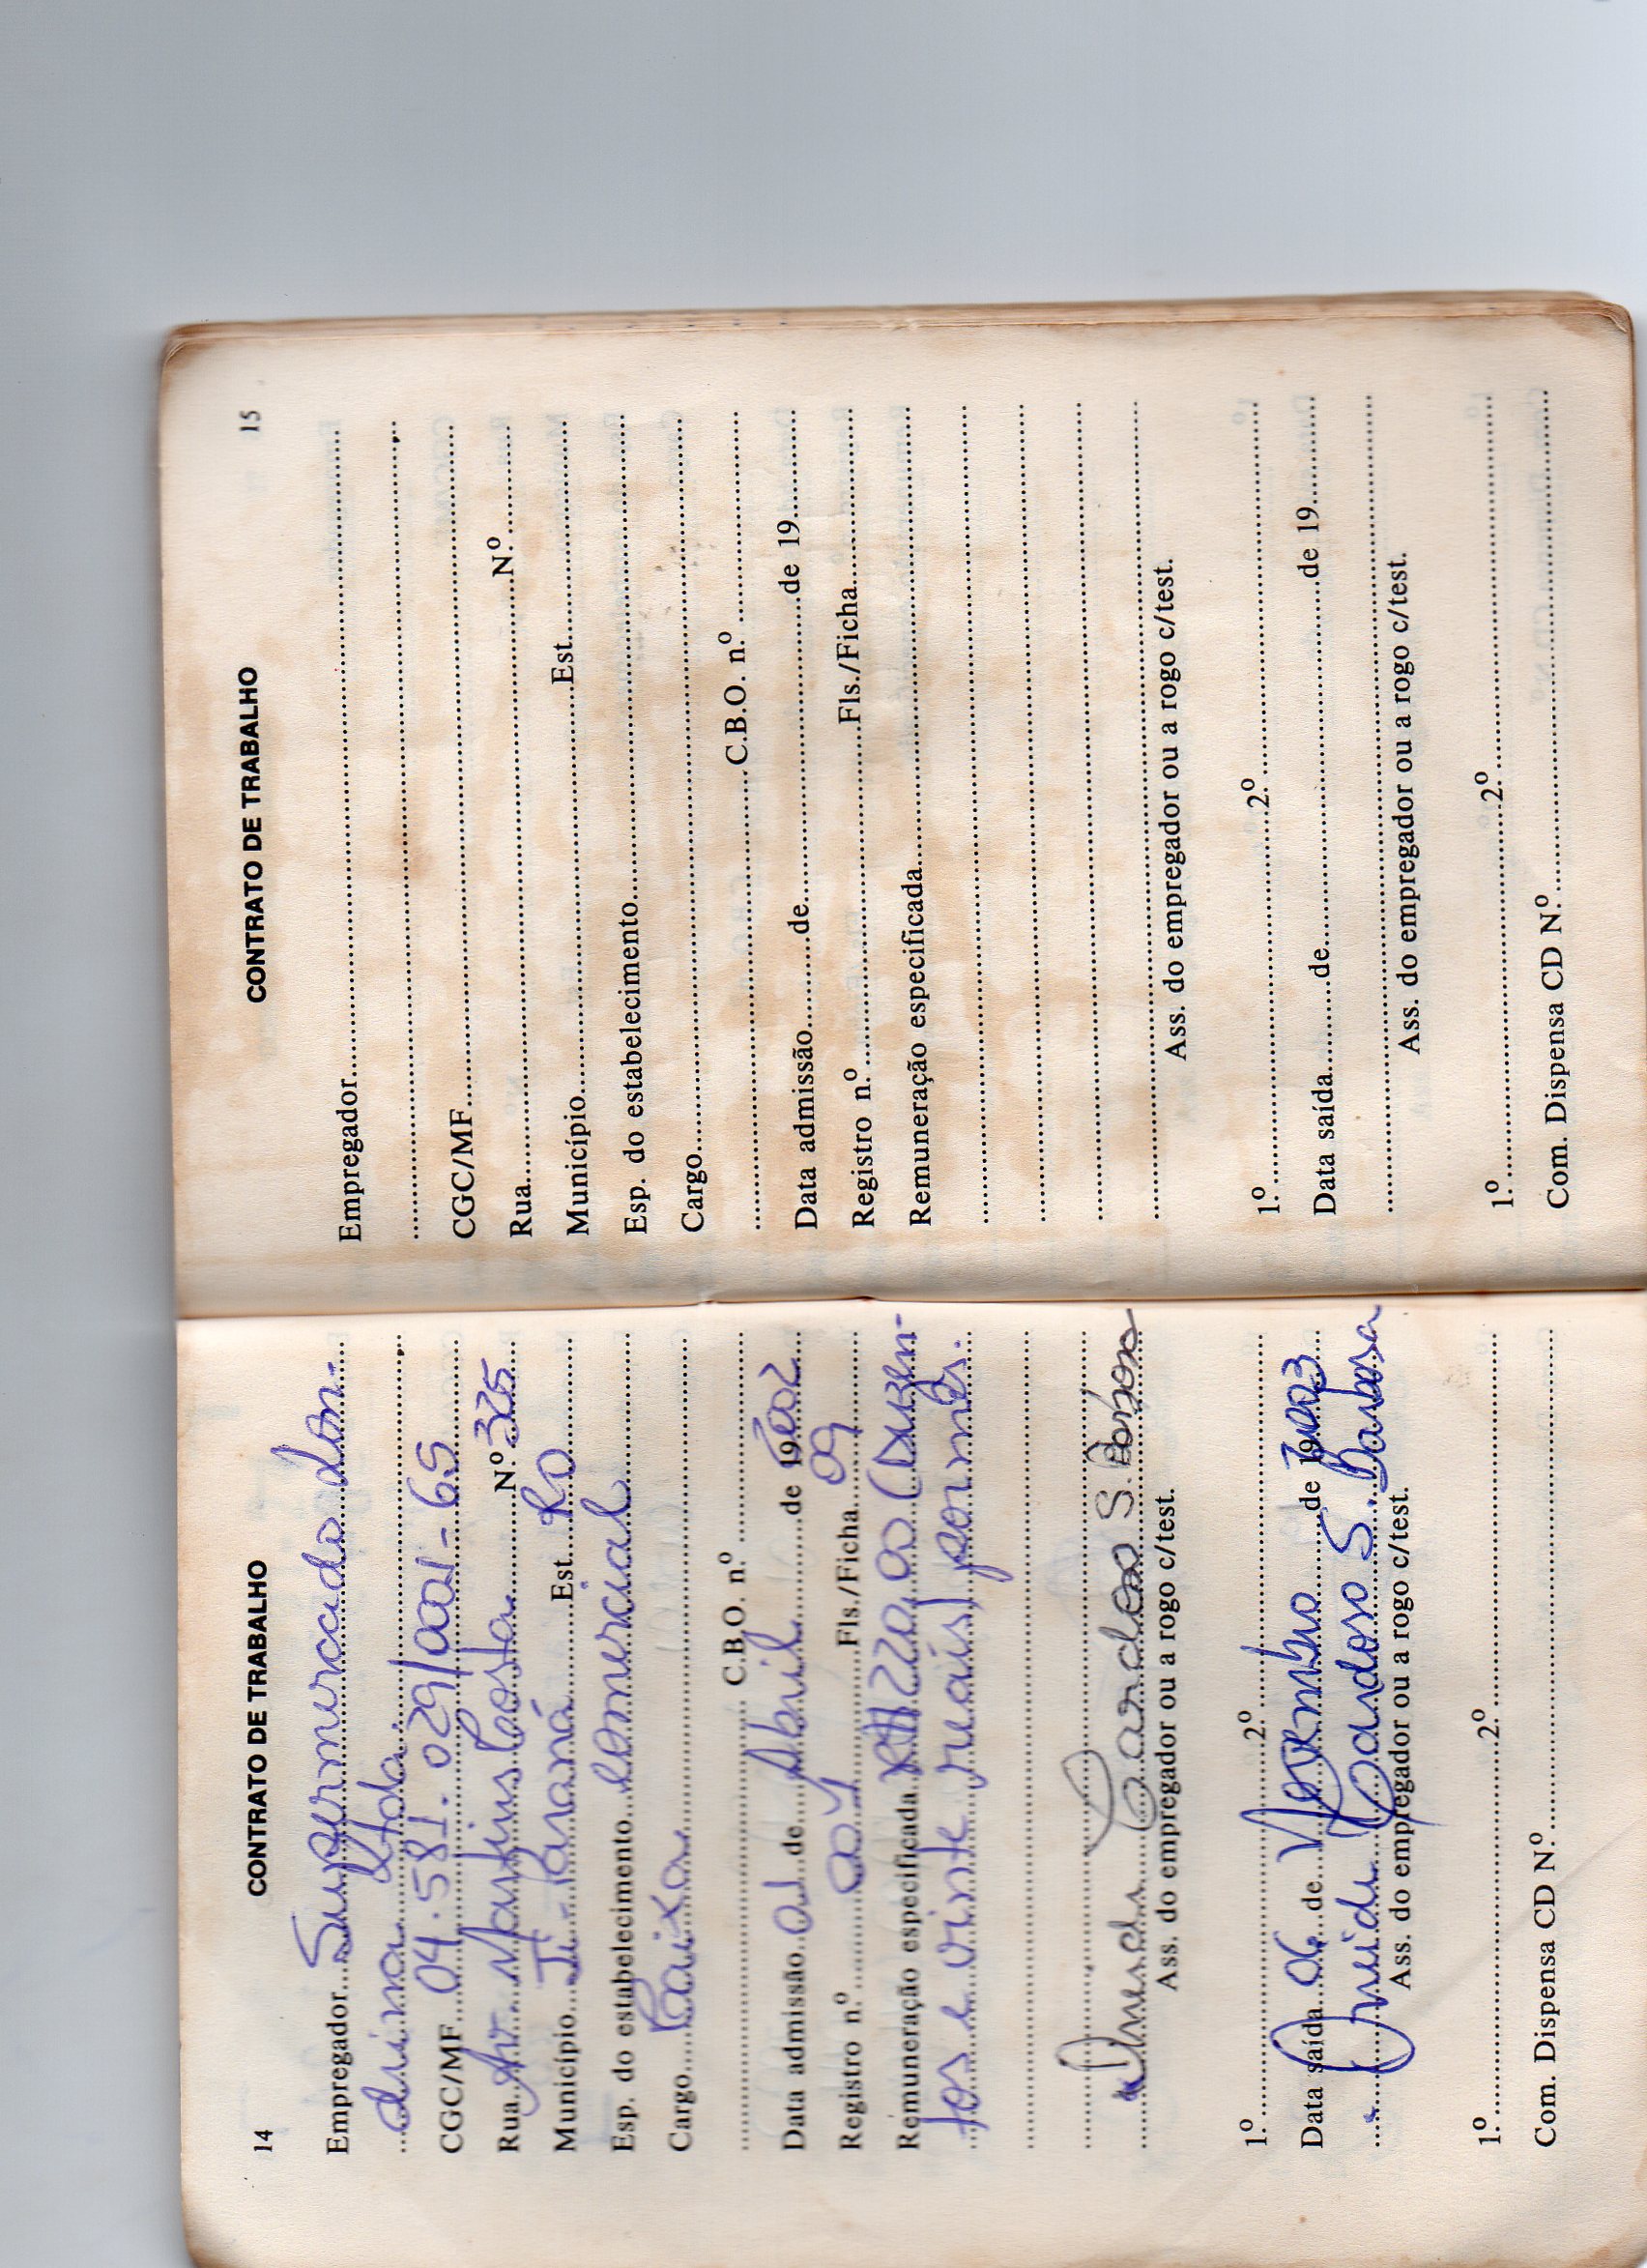 14
CONTRATO DE TRABALHO
Empregador Supermercado Lon-
drina Ltda.
CGC/MF 04.581.029/0001-65
Rua Av. Martins Costa N.º 325
Município Ji-Paraná Est. RO
Esp. do estabelecimento comercial
Cargo Caixa
C.B.O. n.º
Data admissão 01 de Abril de 19 2002
Registro n.º 001 Fls./Ficha 09
Remuneração especificada 220,00 (Duzen-
tos e vinte reais) por mês.
Cardoso S. Barbosa
Ass. do empregador ou a rogo c/test.
1.º 2.º
Data saída 06 de Novembro de 19 2003
Cardoso S. Barbosa
Ass. do empregador ou a rogo c/test.
1.º 2.º
Com. Dispensa CD N.º
15
CONTRATO DE TRABALHO
Empregador
CGC/MF
Rua N.º
Município Est.
Esp. do estabelecimento
Cargo
C.B.O. n.º
Data admissão de de 19
Registro n.º Fls./Ficha
Remuneração especificada
Ass. do empregador ou a rogo c/test.
1.º 2.º
Data saída de de 19
Ass. do empregador ou a rogo c/test.
1.º 2.º
Com. Dispensa CD N.º